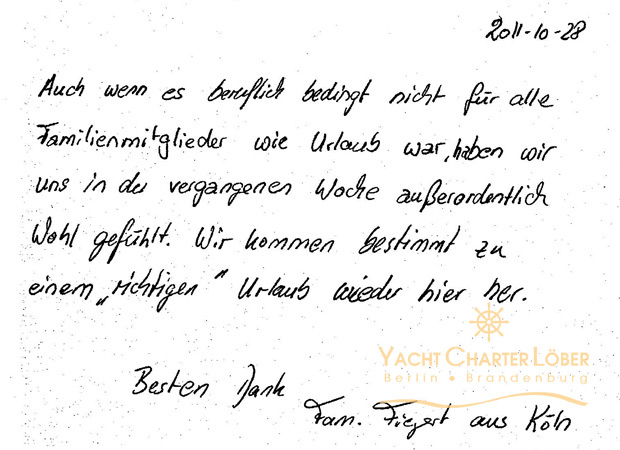 2011-10-28
Auch wenn es beruflich bedingt nicht für alle
Familienmitglieder wie Urlaub war, haben wir
uns in der vergangenen Woche außerordentlich
Wohl gefühlt. Wir kommen bestimmt zu
einem „richtigen“ Urlaub wieder hier her.
YACHT CHARTER LÖBER
Berlin • Brandenburg
Besten Dank
Fam. Fiegert aus Köln